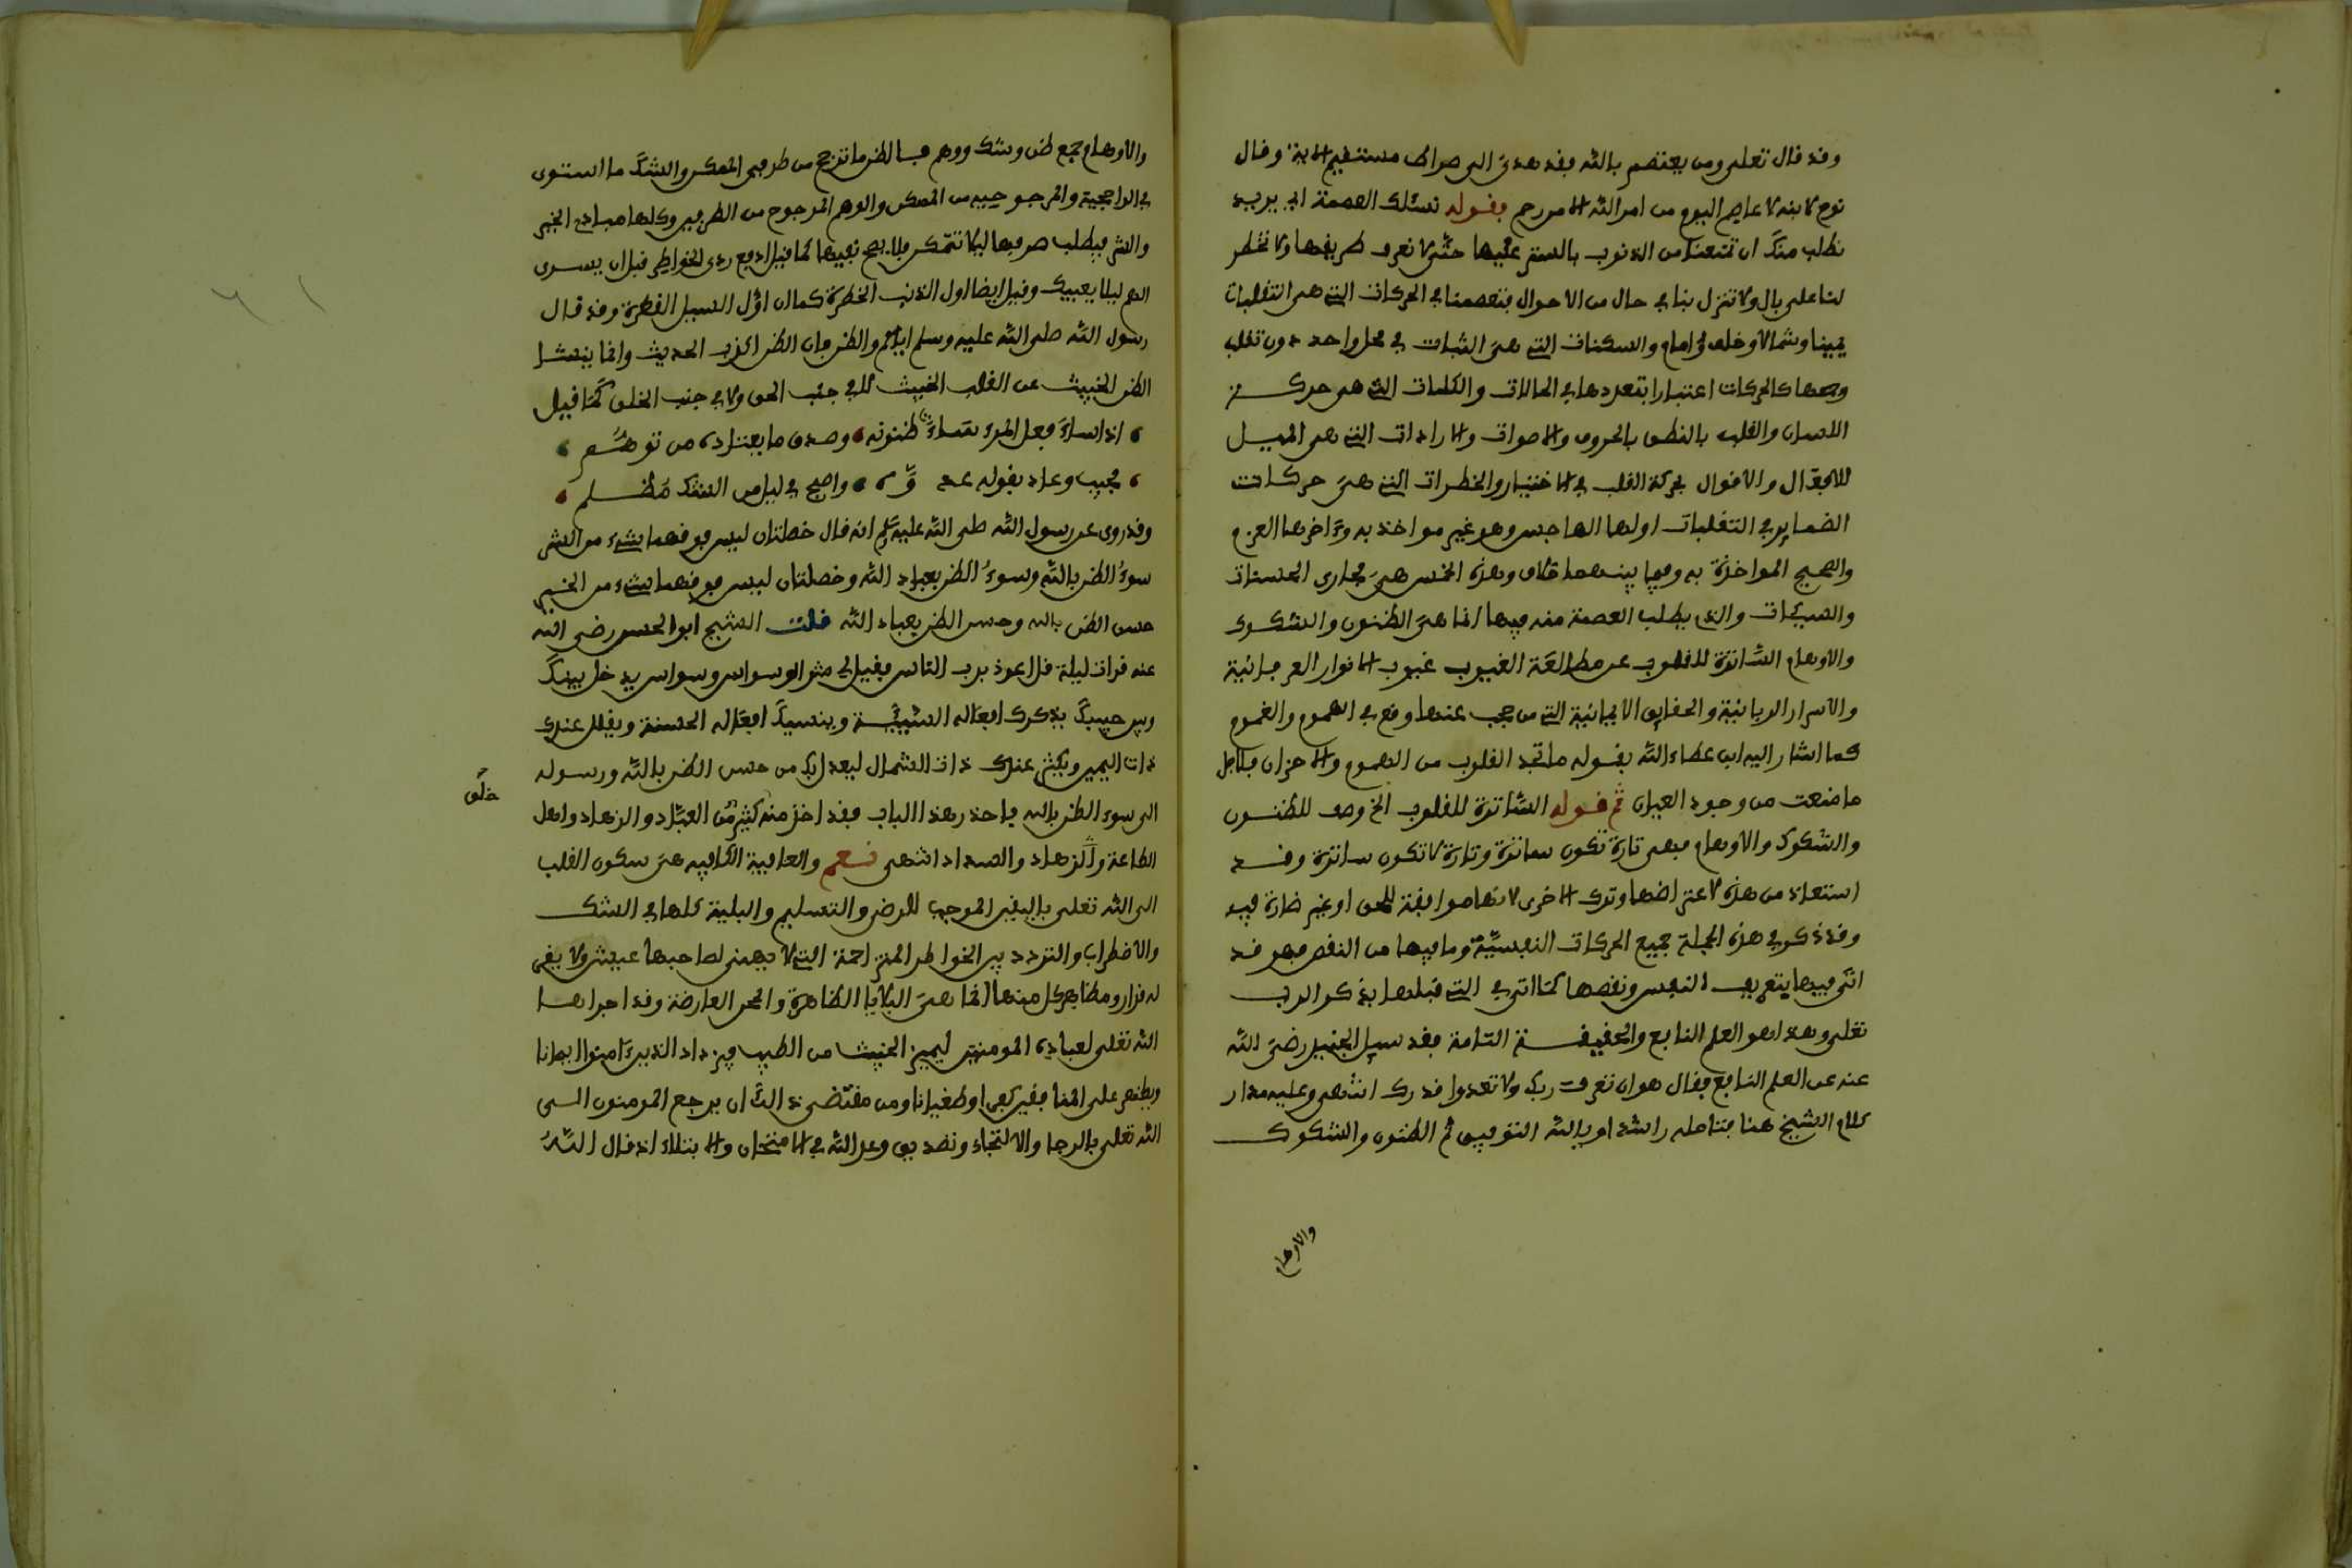 وقد قال تعلى ومن يعتصم بالله فقد هدى الى صراط مستقيم الاية وقال
نوح لابنه لا عاصم اليوم من امر الله الا من رحم فقوله نسئلك العصمة اي يريد
نطلب منك ان تمنعنا من الذنوب بالستر عليها حتى لا نعرف طريقها ولا تخطر
لنا على بال ولا تنزل بنا في حال من الاحوال فتعصمنا في الحركات التي هي التقلبات
يمينا وشمالا وخلف وامام والسكنات التي هي الثبات في محل واحد دون تقلب
وجمعها كالحركات اعتبارا بتعددها في الحالات والكلمات التي هي حركة
اللسان والقلب بالنطق بالحروف والاصوات والارادات التي هي الميل
للافعال والاقوال بحركة القلب في الاختيار والخطرات التي هي حركات
الضماير في التقلبات اولها الهاجس وهو غير مواخذ به وءاخرها العزم
والصحيح المواخذة به وفيما بينهما خلاف وهذه الخمس هي مجارى الحسنات
والسيئات والذي يطلب العصمة منه فيها انما هي الظنون والشكوك
والاوهام الساترة للقلوب عن مطالعة الغيوب غيوب الانوار العرفانية
والاسرار الربانية والحقايق الايمانية التي من حجب عندها وقع في الهموم والغموم
كما اشار اليه ابن عطاء الله بقوله ما تجد القلوب من الهموم والاحزان فلاجل
ما منعت من وجود العيان ثم قوله الساترة للقلوب الخ وصف للظنون
والشكوك والاوهام فهي تارة تكون ساترة وتارة لا تكون ساترة وقد
استعاذ من هذه لاعتراضها وترك الاخرى لانها موافقة للحق او غير ضارة فيه
وقد ذكر في هذه الجملة جميع الحركات النفسية وما فيها من النقص فهو قد
اتى فيها بتعريف النفس ونقصها كما اتى في التي قبلها بذكر الرب
تعلى وهذا هو العلم النافع والحقيقة التامة فقد سيل الجنيد رضي الله
عنه عن العلم النافع فقال هو ان تعرف ربك ولا تعدوا قدرك انتهى وعليه مدار
كلام الشيخ هنا فتامله راشدا وبالله التوفيق ثم الظنون والشكوك
والاوهام
والاوهام جمع ظن وشك ووهم فالظن ما ترجح من طرفي الممكن والشك ما استوى
في الراجحية والمرجوحية من الممكن والوهم المرجوح من الطرفين وكلها مبادي الخير
والشر فيطلب صرفها ليلا تتمكن فلا يصح نفيها كما قيل ادفع ردي الخواطر قبل ان يسرى
الهم ليلا يعييك وقيل ايضا اول الذنب الخطرة كما ان اول السيل القطرة وقد قال
رسول الله صلى الله عليه وسلم اياكم والظن فان الظن اكذب الحديث وانما ينشا
الظن الخبيث عن القلب الخبيث لا في جنب الحق ولا في جنب الخلق كما قيل
اذا ساء فعل المرء ساءت ظنونه وصدق ما يعتاده من توهم
محبيه وعاد بقوله عد وه واصبح في ليل من الشك مظلم
وقد روى عن رسول الله صلى الله عليه وسلم انه قال خصلتان ليس فوقهما شيء من الشر
سوء الظن بالله وسوء الظن بعباد الله وخصلتان ليس فوقهما شيء من الخير
حسن الظن بالله وحسن الظن بعباد الله قلت الشيخ ابو الحسن رضي الله
عنه قرات ليلة قل اعوذ برب الناس فقيل لي من الوسواس وسواس يدخل بينك
وبين حبيبك بذكرك افعاله السيئة وينسيك افعاله الحسنة ويقلل عندك
ذات اليمين ويكثر عندك ذات الشمال ليعدل بك من حسن الظن بالله ورسوله
الى سوء الظن بالله فاحذر هذا الباب فقد اخذ منه كثير من العباد والزهاد واهل
خلق
الطاعة والزهاد والسداد انتهى نعم والعافية الكافية هي سكون القلب
الى الله تعلى باليقين الموجب للرضى والتسليم والبلية كلها في الشك
والاضطراب والتردد بين الخواطر المتزاحمة التي لا يهنى لصاحبها عيش ولا يقر
له قرار ومظاهر كل منها انما هي البلايا الظاهرة والمحن العارضة وقد اجراها
الله تعلى لعباده المومنين ليميز الخبيث من الطيب فيزداد الذين ءامنوا ايمانا
ويظهر على المنافقين كفرا وطغيانا ومن مقتضى ذالك ان يرجع المومنون الى
الله تعلى بالرجا والالتجاء وتصديق وعد الله في الامتحان والابتلاء اذ قال الله